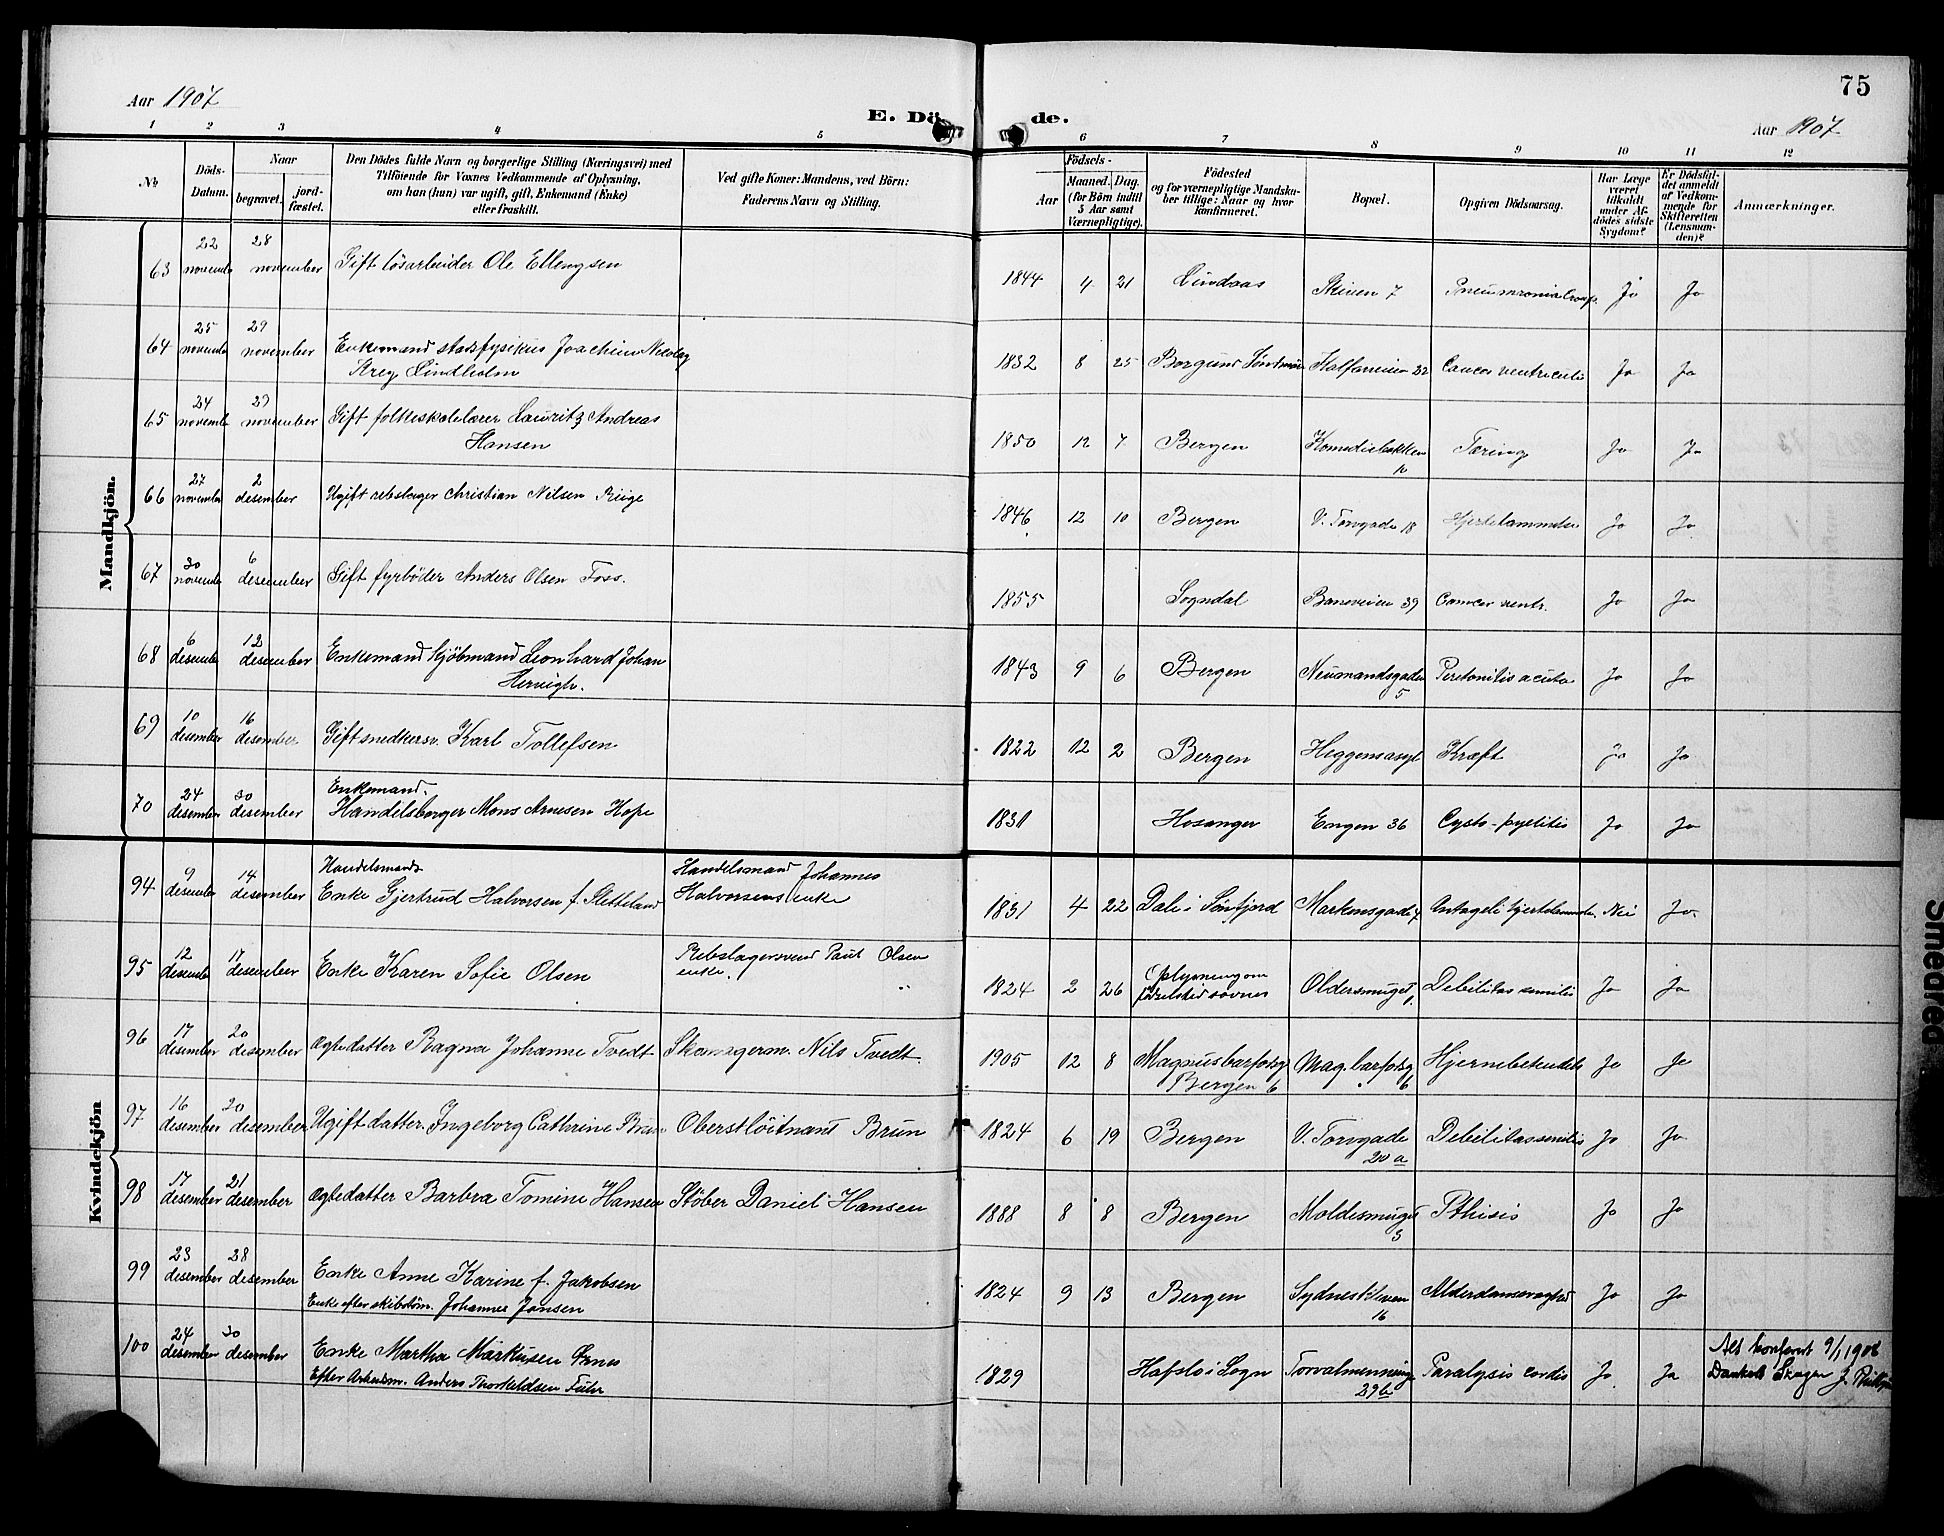 75
Aar 1907
E. Dö de.
Aar 1907
1 2 3 4 5 6 7 8 9 10 11 12
No.
Döds-Datum.
Naar
begravet.
jord-fæstet.
Den Dödes fulde Navn og borgerlige Stilling (Næringsvei) med
Tilföiende for Voxnes Vedkommende af Oplysning,
om han (hun) var ugift, gift, Enkemand (Enke)
eller fraskilt.
Ved gifte Koner: Mandens, ved Börn:
Faderens Navn og Stilling.
Födsels-
Aar
Maaned. Dag.
(for Börn indtil
5 Aar samt
Værnepligtige).
Födested
og for værnepligtige Mandsku-
ber tillige: Naar og hvor
konfirmeret.
Bopæl.
Opgiven Dödsaarsag.
Har Læge
været
tilkaldt
under Af-
dödes sidste
Sygdom?
Er Dödsfal-
det anmeldt
af Vedkom-
mende for
Skifteretten
(Lensman-
den)?
Anmærkninger.
Mandkjön.
63 22 november 28 november Gift løsarbeider Ole Ellengsen 1844 4 21 Lindaas Skiven 7 Ja Ja
64 25 november 29 november Enkemand stadsfysikus Joachim Nicolay
Krey Lindholm 1832 8 25 Borgund Söndmör Kalfarveien 22 Cancer ventriculi Ja Ja
65 24 november 29 november Gift folkeskolelærer Lauritz Andreas
Hansen 1850 12 7 Bergen Komediebakken Tæring Ja Ja
66 27 november 2 desember Ugift rebslager Christian Nilsen Riige 1846 12 10 Bergen V. Torvgade 18 Hjertelammelse Ja Ja
67 30 november 6 desember Gift fyrböder Anders Olsen Foss. 1855 Sogndal Baneveien 39 Cancer ventr. Ja Ja
68 6 desember 12 desember Enkemand kjöbmand Leonhard Johan
1843 9 6 Bergen Neumandsgaden 5 Peretonitis acuta Ja Ja
69 10 desember 16 desember Gift snedkersv. Karl Tollefsen 1822 12 2 Bergen Heggensasyl Kræft Ja Ja
70 24 desember 30 desember Enkemand.
Handelsborger Mons Arnesen Hope 1831 Hosanger Engen 36 Cysto-pyelitis Ja Ja
Kvindekjön
94 9 desember 14 desember Handelsmands
Enke Gjertrud Halvorsen f. Sletteland Handelsmand Johannes
Halvorsens enke 1831 4 22 Dale i Söndfjord Markensgade 7 Antageli hjertelammelse. Nei Ja
95 12 desember 17 desember Enke Karen Sofie Olsen Rebslagersvend Paul Olsen
enke. 1824 2 26 Oplysning om
födested savnes Oldersmuget 1. Debilitas senilis Ja Ja
96 17 desember 20 desember Ægtedatter Ragna Johanne Tvedt Skomagerm. Nils Tvedt. 1905 12 8 Magnusbarfodsg
Bergen 6 Mag. barfodsg 6 Hjernebetændelse Ja Ja
97 16 desember 20 desember Ugift datter. Ingeborg Cathrine Brun Oberstlöitnant Brun 1824 6 19 Bergen V. Torvgade
20 a Debilitas senilis Ja Ja
98 17 desember 21 desember Ægtedatter Barbra Tomine Hansen Stöber Daniel Hansen 1888 8 8 Bergen Moldesmuget
3 Pthisis Ja Ja
99 23 desember 28 desember Enke Anne Karine f. Jakobsen
Enke efter skibstöm. Johannes Jansen 1824 9 13 Bergen Sydneskleven
16 Alderdomssvaghed Ja Ja
100 24 desember 30 desember Enke Martha Markusen Ørnes
Efter Arbeidsm. Anders Thorkeldsen 1829 Hafslo i Sogn Torvalmenning
29 b Paralysis cordis Ja Ja Alt konferert 9/1 1908
Smedree